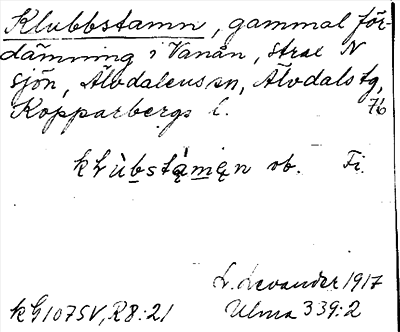 Klubbstamn, gammal för-
dämning i Vanån, strax N
sjön, Älvdalens sn, Älvdals tg,
Kopparbergs l. 76
ob. Fi.
L. Levander 1917
KG1075V, R8:21 Ulma 339:2